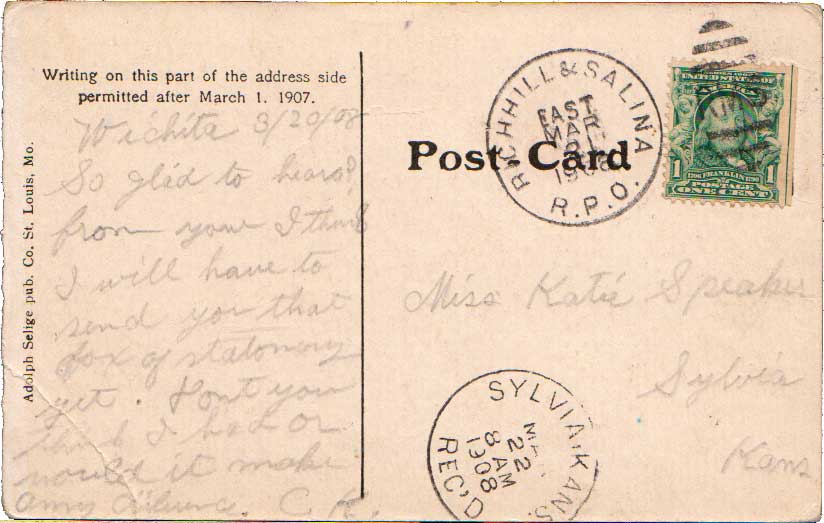 Writing on this part of the address side
permitted after March 1. 1907.
Wichita 3/20/08
So glad to hears?
from your I think
I will have to
send you that
box of stationery
yet. Dont you
think I had or
would it make
any C.
Adolph Selige pub. Co. St. Louis, Mo.
Post Card
RICHHILL & SALINA
EAST
MAR
21
1908
R.P.O.
UNITED STATES OF
AMERICA
1 FRANKLIN 1
POSTAGE
ONE CENT
Miss Katie Speaker
Sylvia
Kans
SYLVIA, KANS.
22
8 AM
1908
REC'D